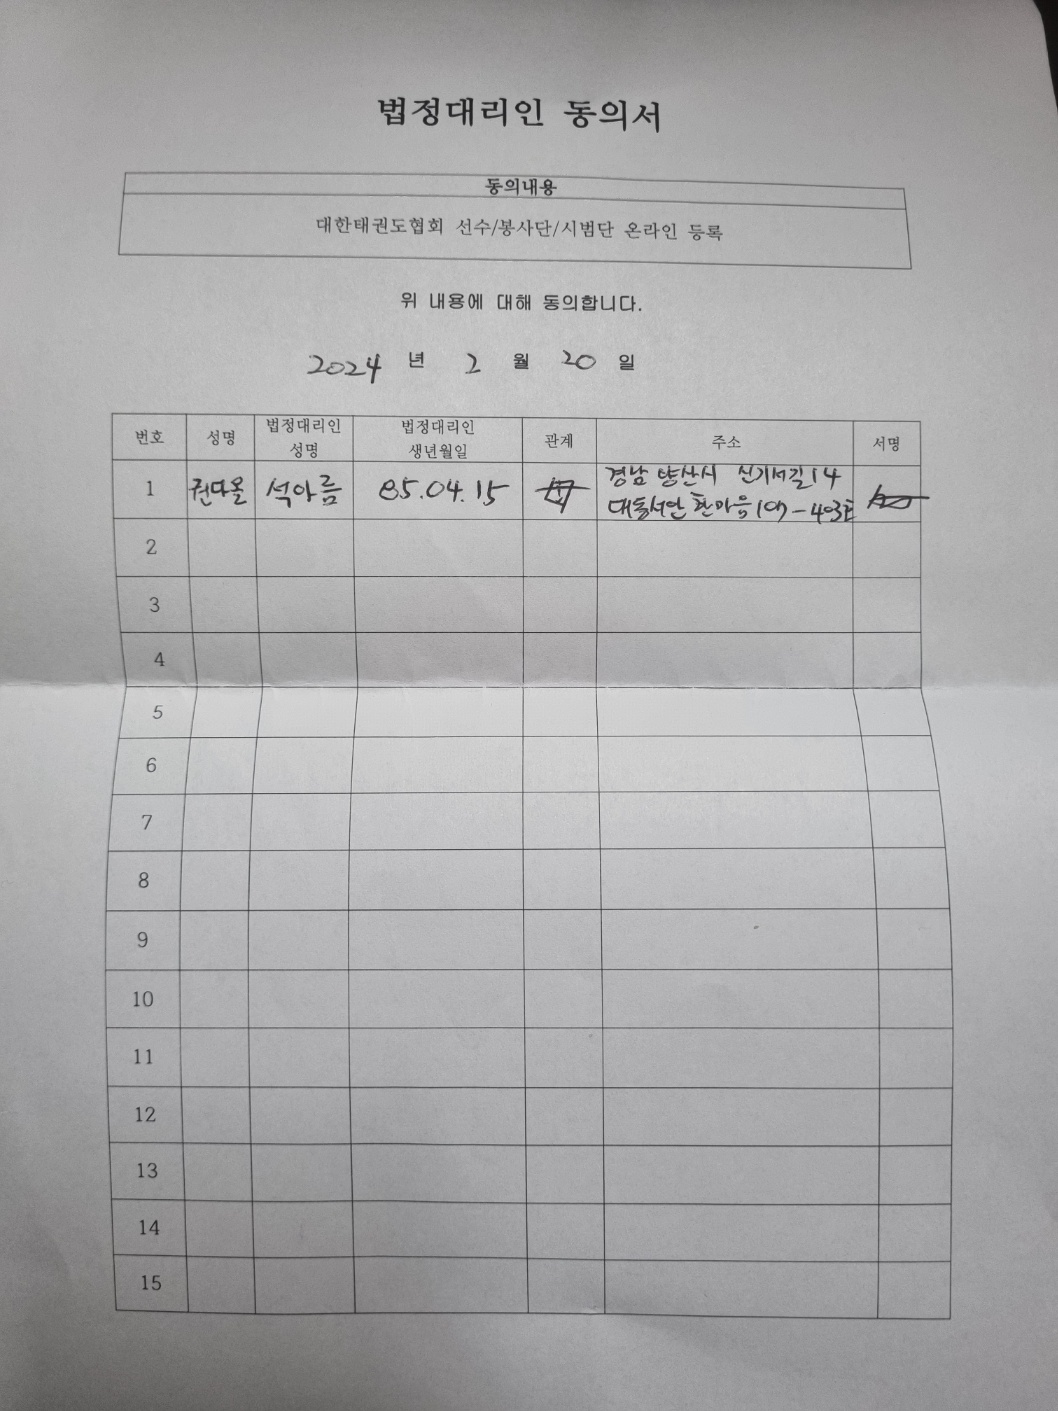 법정대리인 동의서
동의내용
대한태권도협회 선수/봉사단/시범단 온라인 등록
위 내용에 대해 동의합니다.
2024 년 2 월 20 일
번호 성명 법정대리인 성명 법정대리인 생년월일 관계 주소 서명
1 권다올 석아름 85.04.15 경남 양산시 신기서길 14
대동서안 한마음 109-403호
2
3
4
5
6
7
8
9
10
11
12
13
14
15